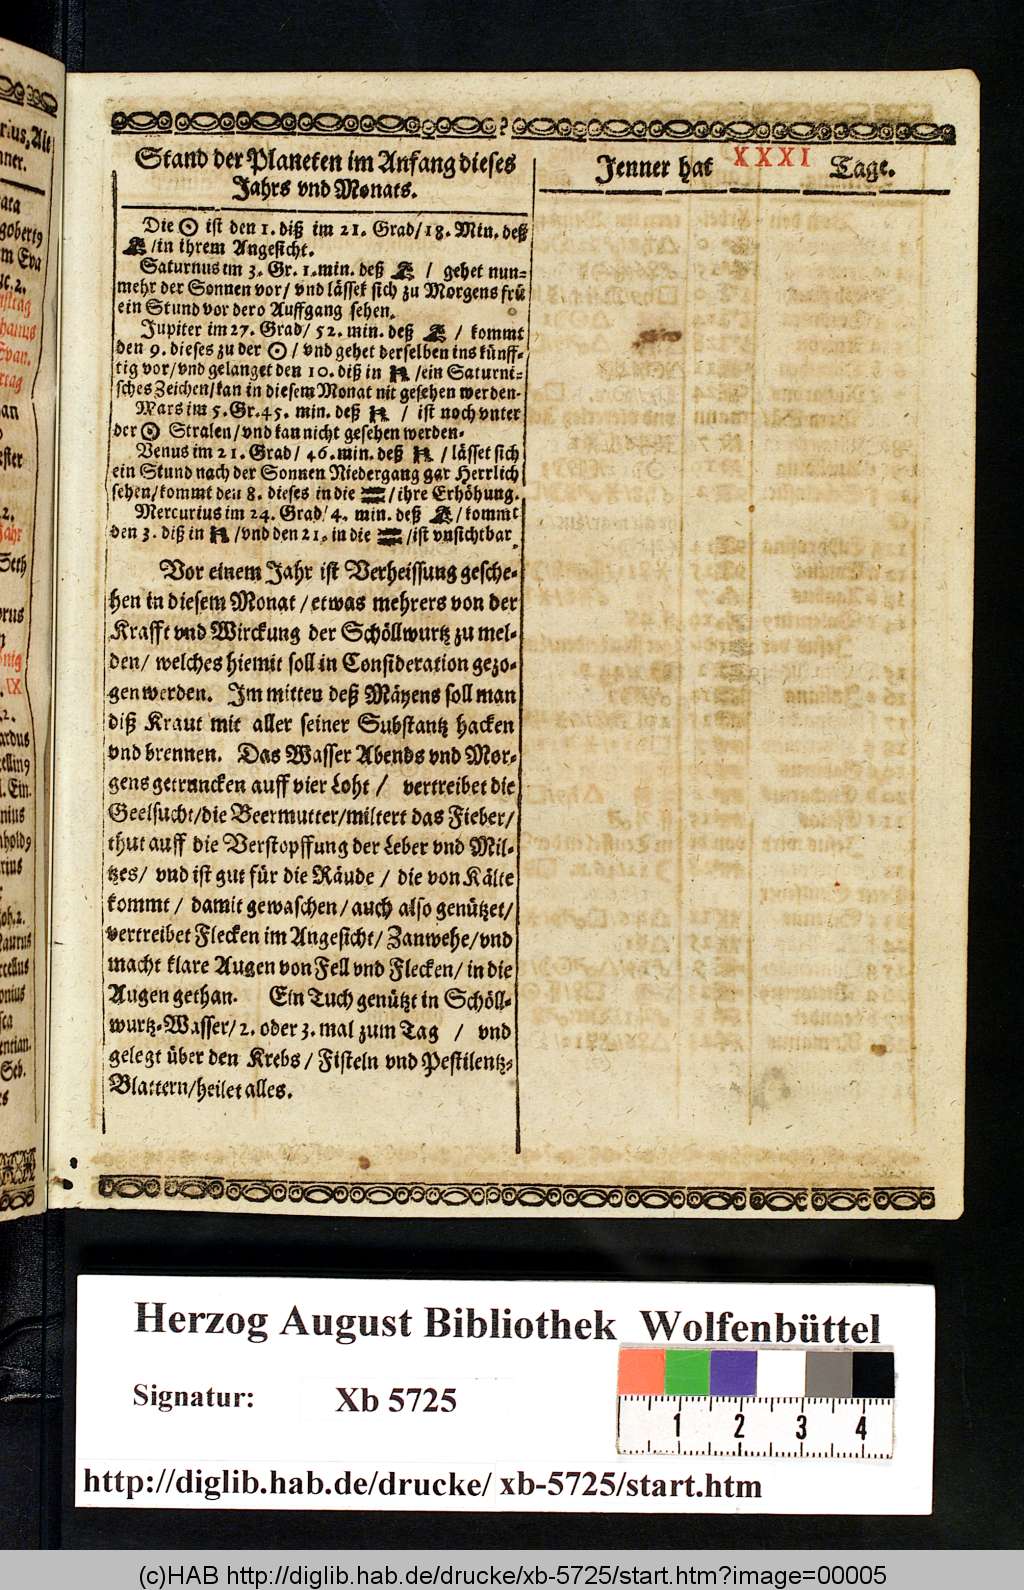 Stand der Planeten im Anfang dieses
Jahrs vnd Monats.
Die ☉ ist den 1. diß im 21. Grad/18. Min. deß
♑/in ihrem Angesicht.
Saturnus im 3. Gr. 1. min. deß ♑ / gehet nun=
mehr der Sonnen vor/ vnd lässet sich zu Morgens frü
ein Stund vor dero Auffgang sehen.
Jupiter im 27. Grad/ 52. min. deß ♑/ kommt
den 9. dieses zu der ☉/ vnd gehet derselben ins künff=
tig vor/vnd gelanget den 10. diß in ♒/ein Saturni=
sches Zeichen/kan in diesem Monat nit gesehen werden.
Mars im 5. Gr. 45. min. deß ♒ / ist noch vnter
der ☉ Stralen/vnd kan nicht gesehen werden.
Venus im 21. Grad/ 46. min. deß ♒ / lässet sich
ein Stund nach der Sonnen Niedergang gar Herrlich
sehen/kommt den 8. dieses in die ♓/ihre Erhöhung.
Mercurius im 24. Grad/ 4. min. deß ♑/kommt
den 3. diß in ♒/vnd den 21. in die ♓/ist vnsichtbar
Vor einem Jahr ist Verheissung gesche=
hen in diesem Monat/etwas mehrers von der
Krafft vnd Wirckung der Schöllwurtz zu mel=
den/ welches hiemit soll in Consideration gezo=
gen werden. Im mitten deß Mäyens soll man
diß Kraut mit aller seiner Substantz hacken
vnd brennen. Das Wasser Abends vnd Mor=
gens getruncken auff vier Loht / vertreibet die
Geelsucht/die Beermutter/miltert das Fieber/
thut auff die Verstopffung der Leber vnd Mil=
tzes/ vnd ist gut für die Räude / die von Kälte
kommt/ damit gewaschen/auch also genützet/
vertreibet Flecken im Angesicht/ Zanwehe/vnd
macht klare Augen von Fell vnd Flecken/in die
Augen gethan. Ein Tuch genützt in Schöll=
wurtz=Wasser/2. oder 3. mal zum Tag / vnd
gelegt über den Krebs/ Fisteln vnd Pestilentz=
Blattern/heilet alles.
Jenner hat XXXI Tage.
Herzog August Bibliothek Wolfenbüttel
Signatur: Xb 5725
1 2 3 4
http://diglib.hab.de/drucke/ xb-5725/start.htm
(c)HAB http://diglib.hab.de/drucke/xb-5725/start.htm?image=00005